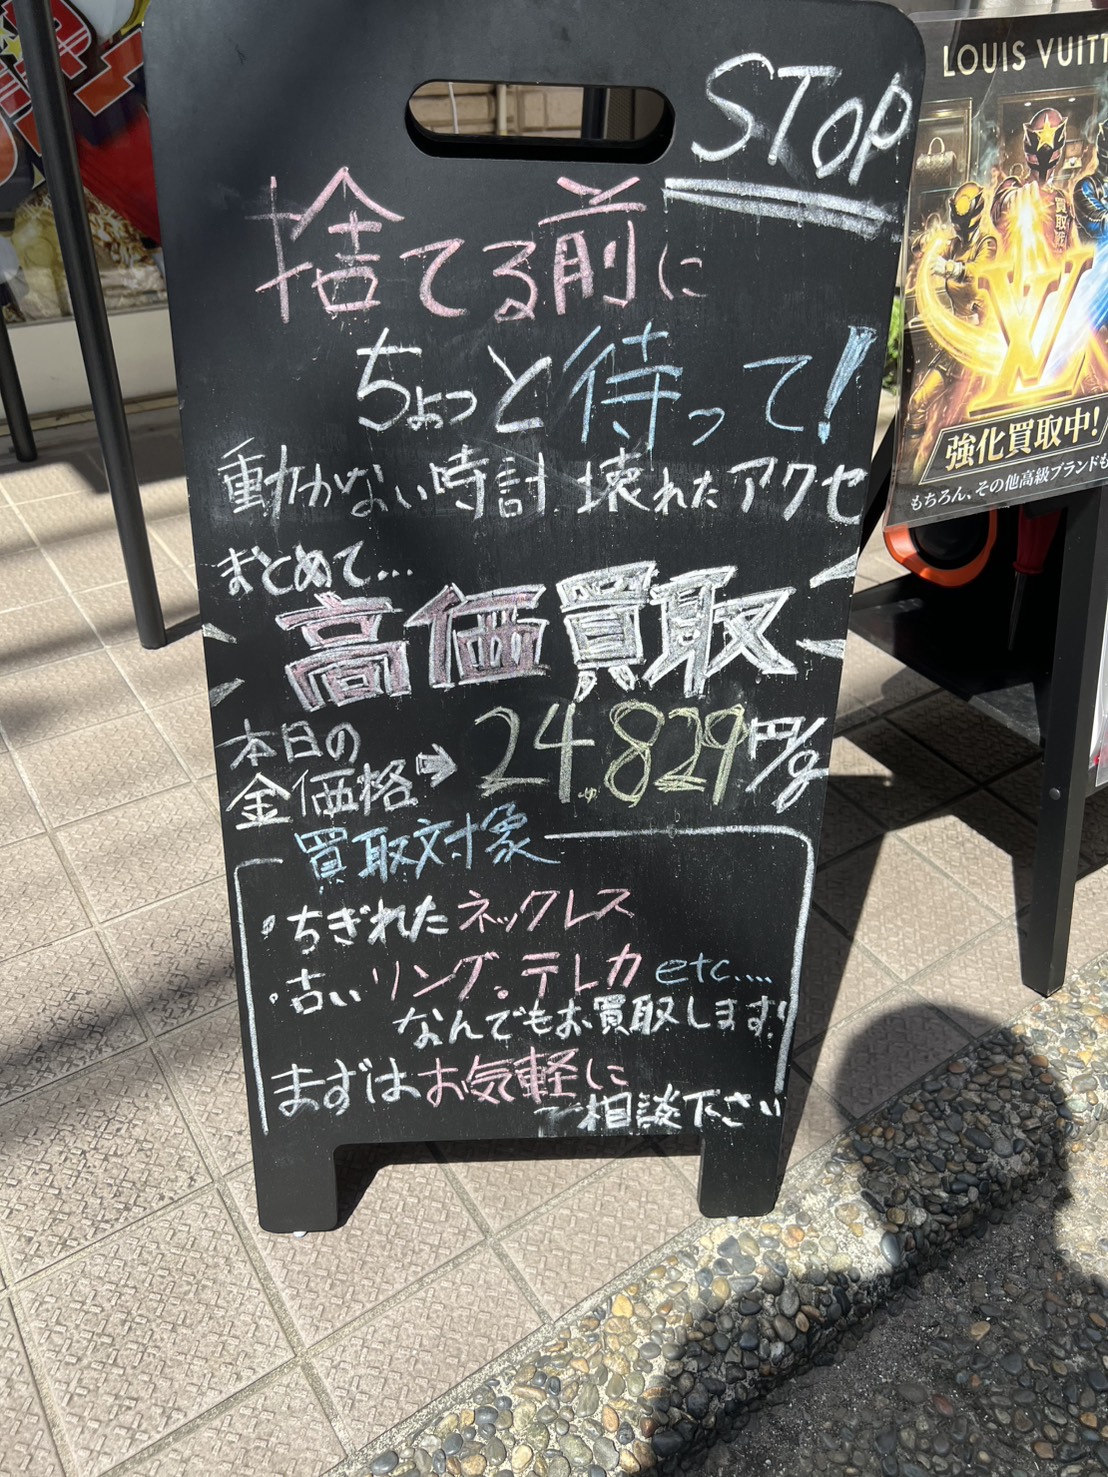 STOP
捨てる前に
ちょっと待って!
動かない時計 壊れたアクセ
まとめて...
高価買取
本日の
金価格➡24.829円/g
買取対象
・ちぎれたネックレス
・古いリング。テレカ etc....
なんでもお買取します!
まずはお気軽に
ご相談下さい
LOUIS VUITT
買取
強化買取中!
もちろん、その他高級ブランドも